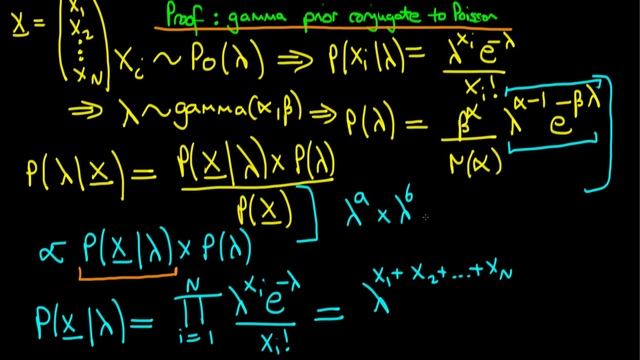 Proof: gamma prior conjugate to Poisson
X = (x₁ x₂ ⋮ x_N) X_i ~ Po(λ) ⇒ P(x_i|λ) = λ^{x_i} e^{-λ} / x_i!
⇒ λ ~ gamma(α,β) ⇒ P(λ) = β^α / Γ(α) λ^{α-1} e^{-βλ}
P(λ|X) = P(X|λ) × P(λ) / P(X)
λ^a × λ^b
∝ P(X|λ) × P(λ)
P(X|λ) = ∏_{i=1}^{N} λ^{x_i} e^{-λ} / x_i! = λ^{x₁+x₂+...+x_N}